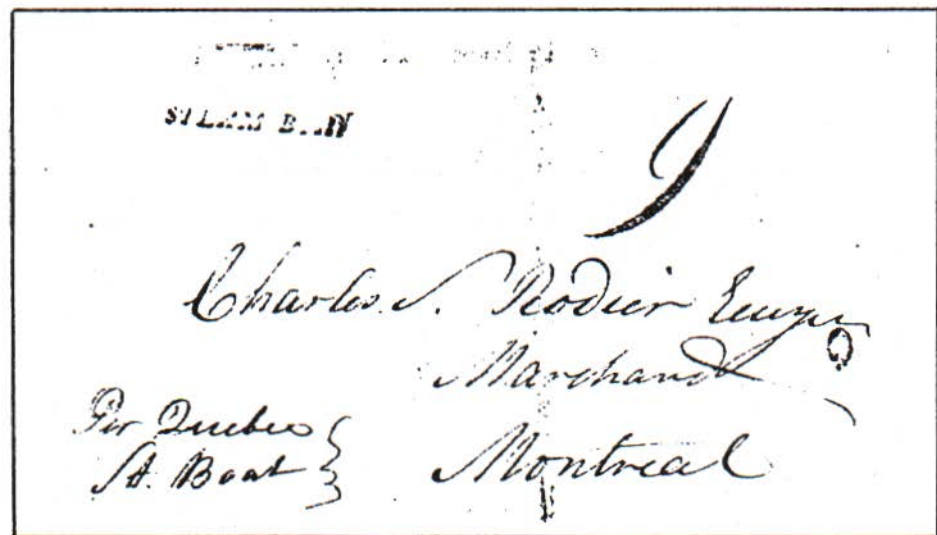 STEAM BOAT
9
Charles S. Rodier Ecuyer
Marchand
Montreal
Per Quebec
St. Boat